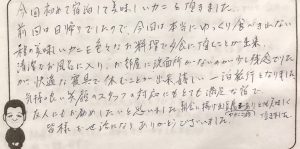 今回初めて宿泊して美味しいカニを頂きました。
前回は日帰りでしたので、今回は本当にゆっくり食べきれない
程の美味しいカニを色々なお料理で夕食に頂くことが出来、
清潔なお風呂に入り、お部屋に洗面所がないのが少し残念でした
が快適な寝具で休むことが出来嬉しい一泊旅行となりました。
気持の良い笑顔のスタッフの対応にもとても満足な宿で
友人にもお勧めしたいと思いました。朝食に揚げた
皆様お世話になりありがとうございました。 頂きました。